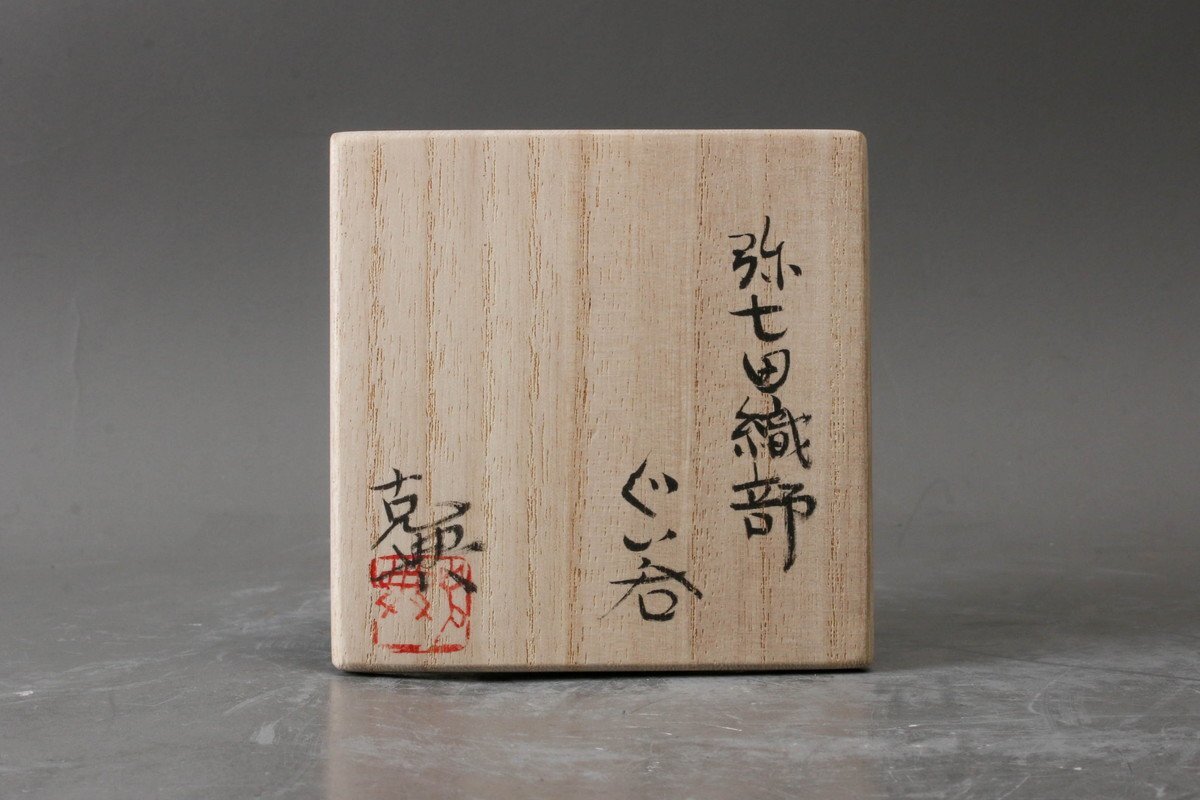 弥七田織部
ぐい呑
克典